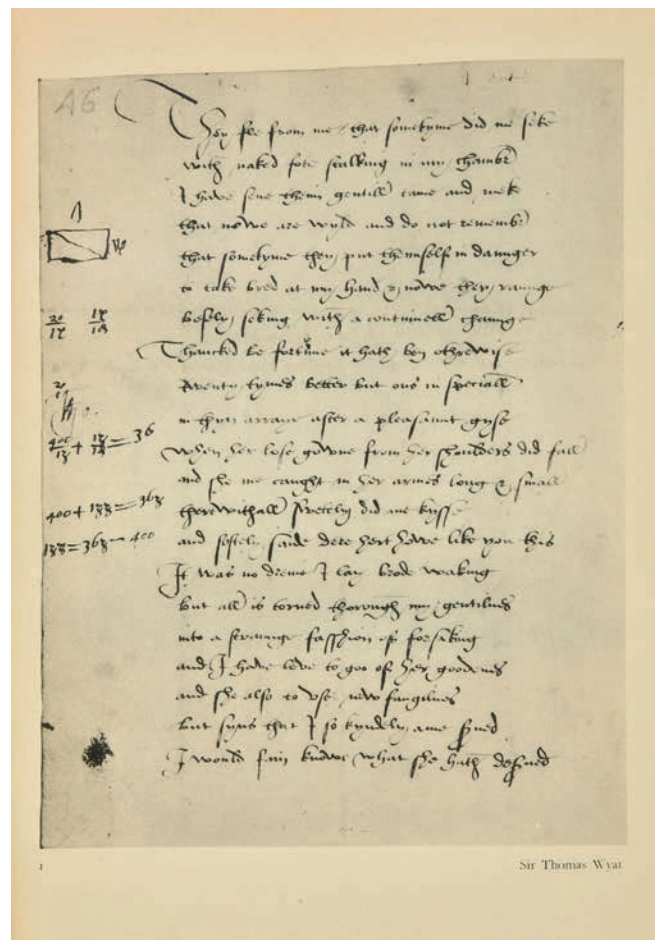 46
They fle from me / that sometyme did me seke
with naked fote stalking in my chambr
I have sene theim gentill tame and meke
that nowe are wyld and do not remembr
that sometyme they put theimself in daunger
to take bred at my hand & nowe they raunge
besely seking with a continuell chaunge
Thancked be fortune it hath ben othrewise
twenty tymes better but ons in speciall
in thyn arraye after a pleasaunt gyse
When her lose gowne from her shoulders did fall
and she me caught in her armes long & small
therewithall swetely did me kysse
and softely saide dere hert howe like you this
It was no dreme I lay brode waking
but all is torned thorough my gentilnes
into a straunge fasshion of forsaking
and I have leve to goo of her goodenes
and she also to vse new fangilnes
but syns that I so kyndely ame served
I would fain knowe what she hath deserved
400 + 133 = 363
133 = 363 - 400
1
Sir Thomas Wyat